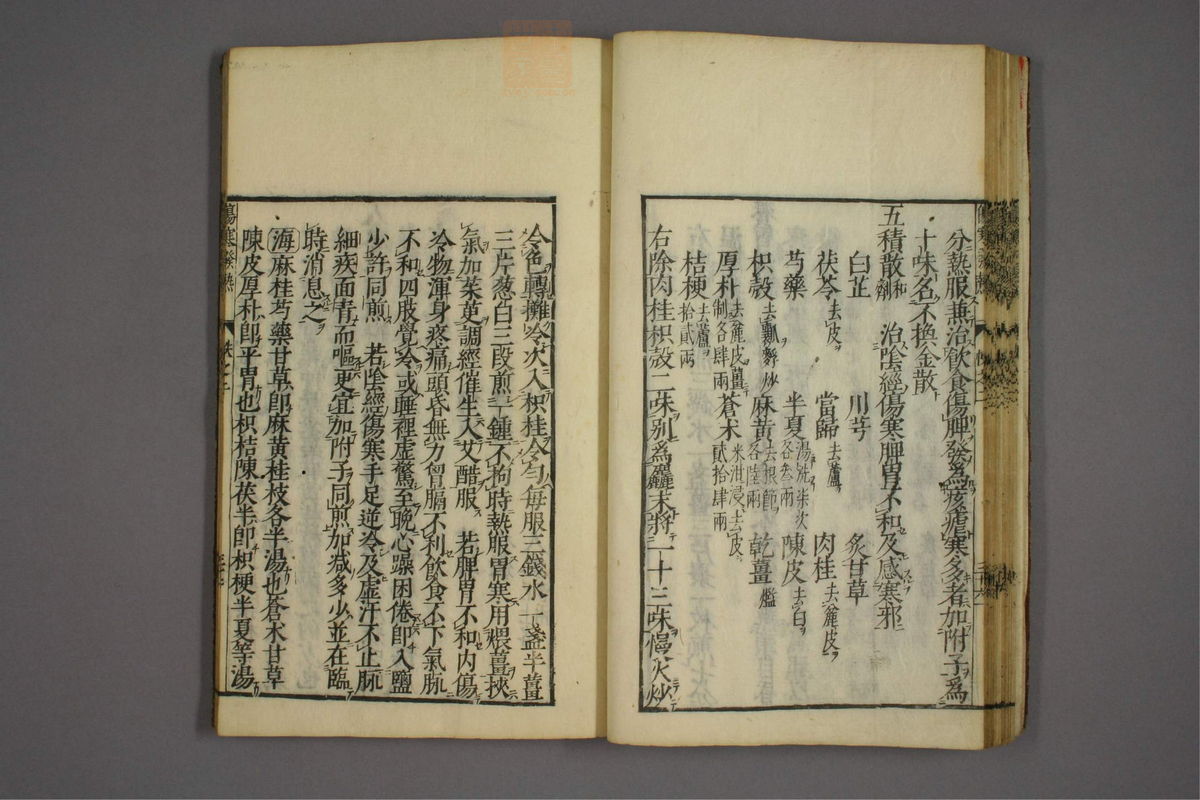 分熱服兼治飲食傷脾發為痎瘧寒多者加附子為
十味名不換金散
五積散和劑 治陰經傷寒脾胃不和及感寒邪
白芷 川芎 炙甘草
茯苓去皮 當歸去蘆 肉桂去麄皮
芍藥 半夏湯洗柒次各叁兩 陳皮去白
枳殼去瓤麩炒 麻黃去根節各陸兩 乾薑爁
厚朴去麄皮薑制各肆兩 蒼朮米泔浸去皮貳拾肆兩
桔梗去蘆拾貳兩
右除肉桂枳殼二味別為麤末將一十三味慢火炒
令色轉攤冷次入枳桂令勻每服三錢水一盞半薑
三片葱白三段煎一鍾不拘時熱服胃寒用煨薑挾
氣加茱萸調經催生入艾醋服 若脾胃不和内傷
冷物渾身疼痛頭昏無力胷膈不利飲食不下氣脉
不和四肢覺冷或睡裡虛驚至晚心躁困倦即入鹽
少許同煎 若陰經傷寒手足逆冷及虛汗不止脉
細疾面青而嘔更宜加附子同煎加减多少並在臨
時消息之
海麻桂芍藥甘草即麻黃桂枝各半湯也蒼朮甘草
陳皮厚朴即平胃也枳桔陳茯半即枳梗半夏等湯
傷寒發熱